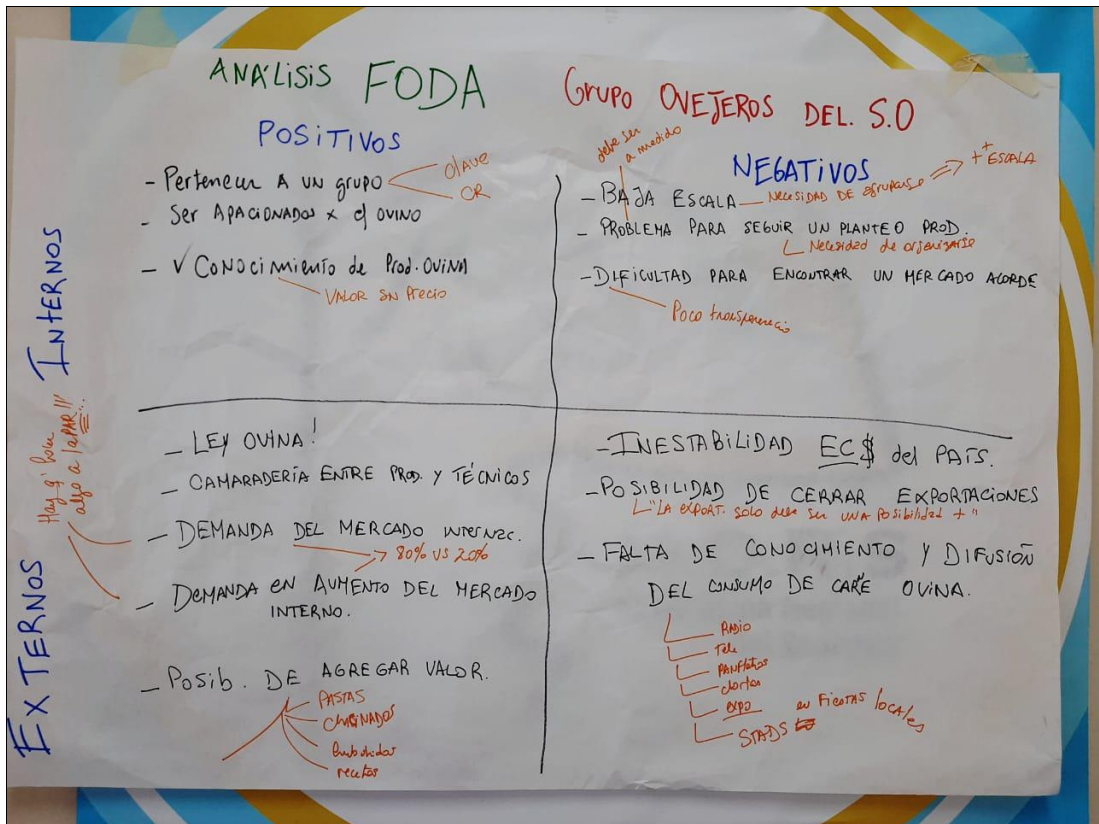 ANÁLISIS FODA
GRUPO OVEJEROS DEL. S.O
POSITIVOS
- Pertenecer A UN grupo
CLAVE
CR
- Ser APACIONADOS x el OVINO
- √ CONOCIMIENTO de Prod. OVINA
VALOR SIN Precio
INTERNOS
debe ser
a medida
NEGATIVOS
- BAJA ESCALA
Necesidad DE agruparse
++ ESCALA
- PROBLEMA PARA SEGUIR UN PLANTEO PROD.
Necesidad de organizarse
- DIFICULTAD PARA ENCONTRAR UN MERCADO ACORDE
Poco transparencia
Hay q' hacer
algo a la PAR!!
EXTERNOS
- LEY OVINA!
- CAMARADERÍA ENTRE PROD. Y TÉCNICOS
- DEMANDA DEL MERCADO INTERNAC.
80% VS 20%
- DEMANDA EN AUMENTO DEL MERCADO
INTERNO.
- POSIB. DE AGREGAR VALOR.
PASTAS
CHACINADOS
Embutidos
recetas
- INESTABILIDAD EC$ del PAÍS.
- POSIBILIDAD DE CERRAR EXPORTACIONES
"LA EXPORT. SOLO debe ser UNA Posibilidad +"
- FALTA DE CONOCIMIENTO Y DIFUSIÓN
DEL CONSUMO DE CARNE OVINA.
RADIO
Tele
PANFLETOS
expo
STADS en FIESTAS locales